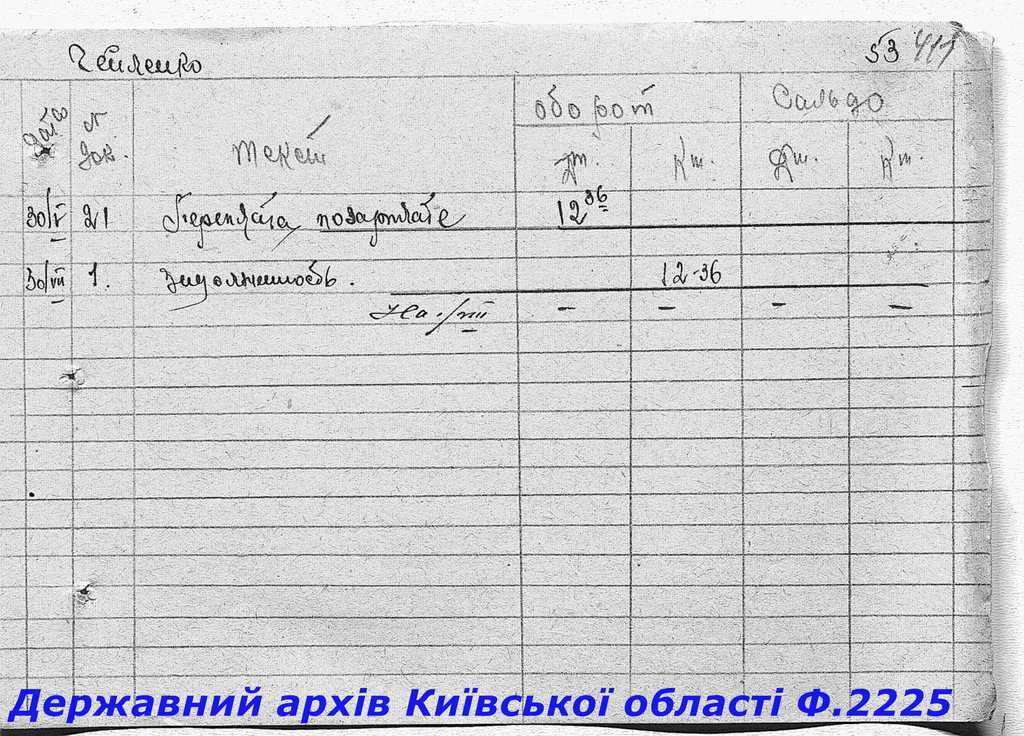 53 411
Дата
N док.
текст
оборот
Сальдо
Дт.
Кт.
Дт.
Кт.
30/V 21 Переплата по зарплате 12 36
30/VII 1. Задолжность. 12-36
На 1/VIII - - - -
Державний архів Київської області Ф.2225